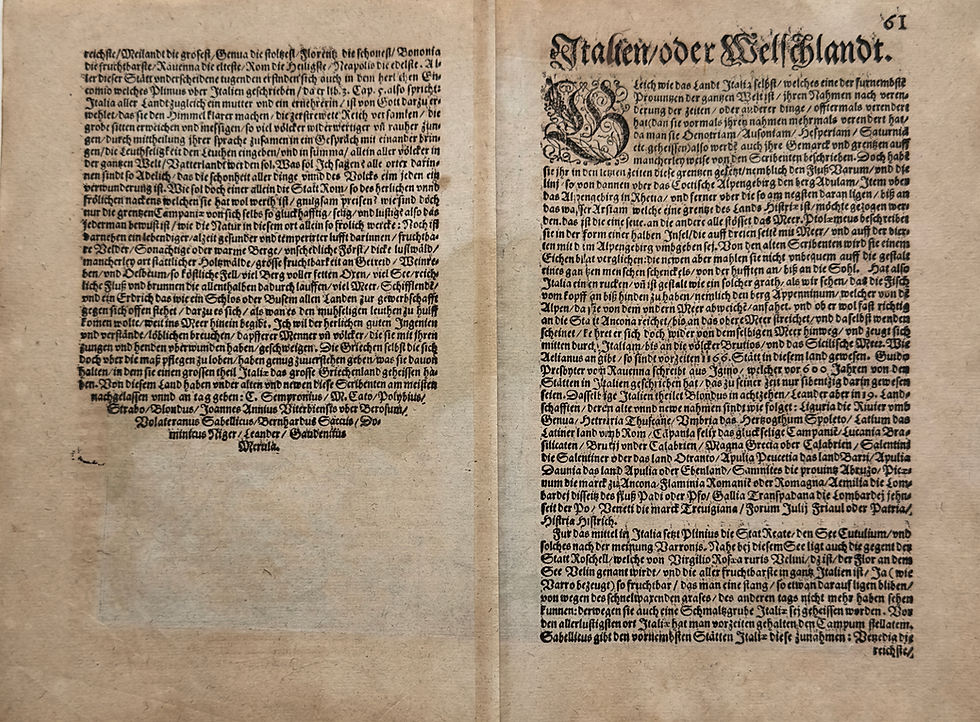 61
Italien/oder Welschlandt.
Gleich wie das Land Italia selbst/ welches eine der furnembste
Prouintzen der gantzen Welt ist/ ihren Nahmen nach veren-
derung der zeiten/ oder anderer dinge/ offtermals verendert
hat(dan sie vormals ihren nahmen mehrmals verendert hat/
da man sie Oenotriam/ Ausoniam/ Hesperiam/ Saturnia
etc geheissen)also werdē auch ihre Gemarck vnd grentzen auff
mancherley weise von den Scribenten beschrieben. Doch habē
sie ihr in den letzten zeiten diese grentzen gesetzt/nemblich den Fluß Varum/ vnd die
linj/ so von dannen vber das Cottische Alpengebirg den berg Adulam/ Item vber
das Alpengebirg in Rhetia/ vnd ferner vber die so am negsten daran ligen/ biß an
das wasser Arsiam welche eine grentze des Lands Histriæ ist/ möchte gezogen wer-
den.das ist die eine seite.an die andere alle stösset das Meer.Ptolæmeus beschreibet
sie in der form einer halben Insel/die auff dreien seitē mit Meer/ vnd auff der vier-
ten mit dem Alpengebirg vmbgeben sej. Von den alten Scribenten wird sie einem
Eichen blat verglichen:die newen aber mahlen sie nicht vnbequem auff die gestalt
eines gantzen menschen schenckels/ von der hufften an/ biß an die Sohl. Hat also
Italia einen rucken/ vn̄ ist gestalt wie ein solcher grath/ als wir sehen/ das die Fisch
vom kopff an biß hinden zu haben/nemlich den berg Appenninum/ welcher von dē
Alpen/da sie von dem vndern Meer abweicht/ anfahet. vnd ob er wol fast richtig
an die Stat Ancona reichet/ biß an das obere Meer streichet/ vnd daselbst wenden
scheinet/ kehrer sich doch wider von demselbigen Meer hinweg/ vnd zeugt sich
mitten durch Italiam/ biß an die völcker Brutios/ vnd das Sicilische Meer. Wie
Aelianus an gibt/ so sindt vorzeiten 1166. Stätt in diesem land gewesen. Guido
Presbyter von Rauenna schreibt aus Igino/ welcher vor 600 Jahren von den
Stätten in Italien geschrieben hat/ das zu seiner zeit nur sibentzig darin gewesen
seien. Dasselbige Italien theilet Blondus in achtzehen/ Leander aber in 19. Land-
schafften/ deren alte vnnd newe nahmen sindt wie folget: Liguria die Riuier vmb
Genua/ Hetruria Thuscane/ Vmbria das Hertzogthum Spoleto/ Latium das
Latiner land vmb Rom/ Cāpania felix das glückselige Campaniē/ Lucania Bra-
silicaten/ Brutij vnder Calabrien/ Magna Grecia ober Calabrien/ Salentini
die Salentiner oder das land Otranto/ Apulia Peucetia das land Barri/ Apulia
Daunia das land Apulia oder Ebenland/ Samnites die prouintz Abruzo/ Pice-
num die marck zu Ancona/ Flaminia Romanie oder Romagna/ Aemilia die Lom-
bardej disseits des fluß Padi oder Pso/ Gallia Transpadana die Lombardej jehn-
seit der Po/ Veneti die marck Treuigiana/ Forum Julij Friaul oder Patria/
Histria Histrich.
Fur das mittel in Italia setzt Plinius die Stat Reate/ den See Cutulium/ vnd
solches nach der meinung Varronis. Nahe bej diesem See ligt auch die gegent der
Statt Roschell/ welche von Virgilio Rosea ruris Velini/ dz ist/ der Flor an dem
See Velin genant wirdt/ vnd die aller fruchtbarste in gantz Italien ist/ Ja (wie
Varro bezeugt) so fruchtbar/ das man eine stang/ so etwan darauf ligen bliben/
von wegen des schnelwaxenden grases/ des anderen tags nicht mehr haben sehen
kunnen:derwegen sie auch eine Schmaltzgrube Italiæ sej geheissen worden. Von
den allerlustigsten ort Italiæ hat man vorzeiten gehalten den Campum stellatem.
Sabellicus gibt den vornembsten Stätten Italiæ diese zunahmen: Venedig die
reichste/
reichste/ Meilandt die grosest/ Genua die stoltzest/ Florentz die schonest/ Bononia
die fruchtbarste/ Rauenna die elteste/ Rom de Heiligste/ Neapolis die edelste. Al-
ler dieser Stätt vnderscheidene tugenden erfinden sich auch in dem herlichen En-
comio welches Plinius vber Italien geschrieben/ da er lib. 3. Cap. 5. also spricht:
Italia aller Landzugleich ein mutter vnd ein ernehrerin/ ist von Gott darzu er-
wehlet/ das sie den Himmel klarer machen/ die zerstrewete Reich versamlen/ die
grobe sitten erweichen vnd messigen/ so viel völcker widerwertiger vn̄ rauher zun-
gen/ durch mittheilung ihrer sprache zusamen in ein Gespräch mit einander brin-
gen/ die Leuthseligkeit den Leuthen eingeben/ vnd in summa/ allein aller völcker in
der gantzen Welt/ Vatterland werden sol. Was sol Ich sagen? alle orter darin-
nen sindt so Adelich/ das die schonheit aller dinge vnnd des Volcks eim jeden ein
verwunderung ist. Wie sol doch einer allein die Statt Rom/ so des herlichen vnnd
frölichen nackens welchen sie hat wol werth ist/ gnugsam preisen? wie sind doch
nur die grentzen Campaniæ von sich selbs so gluckhafftig/ selig/ vnd lustig? also das
jederman bewust ist/ wie die Natur in diesem ort allein so frölich wercke: Noch ist
darneben ein lebendiger/ alzeit gesunder vnd temperirter lufft darinnen/ fruchtba-
re Velder/ Sonachtige oder warme Berge/ vnschedliche Först/ dicke lustwäld/
mancherley art stattlicher Holtzwälde/ grosse fruchtbarkeit an Getreid/ Weinre-
ben/ vnd Oelbeum/ so köstliche Fell/ viel Berg voller fetten Oxen/ viel See/ reich-
liche Fluß vnd brunnen die allenthalben dadurch lauffen/ viel Meer/ Schifflendē/
vnd ein Erdrich das wie ein Schlos oder Busem allen Landen zur gewerbschafft
gegen sich offen stehet/ darzu es sich/ als wan es den muhseligen leuthen zu hulff
komen wolte/ weit ins Meer hinein begibt. Ich wil der herlichen guten Ingenien
vnd verstände/ löblichen breuchen/ dapfferer Menner vn̄ völcker/ die sie mit ihren
zungen vnd henden vberwunden haben/ geschweigen. Die Griechen selbst die sich
doch vber die maß pflegen zu loben/ haben genug zuuerstehen geben/ was sie dauon
halten/ in dem sie einen grossen theil Italiæ das grosse Griechenland geheissen ha-
ben. Von diesem Land haben vnder alten vnd newen diese Scribenten am meisten
nachgelassen vnnd an tag geben: C. Sempronius/ M. Cato/ Polybius/
Strabo/ Blondus/ Joannes Annius Viterbiensis vber Berosum/
Volateranus Sabellicus/ Bernhardus Saccus/ Do-
minicus Niger/ Leander/ Gaudentius
Merula.